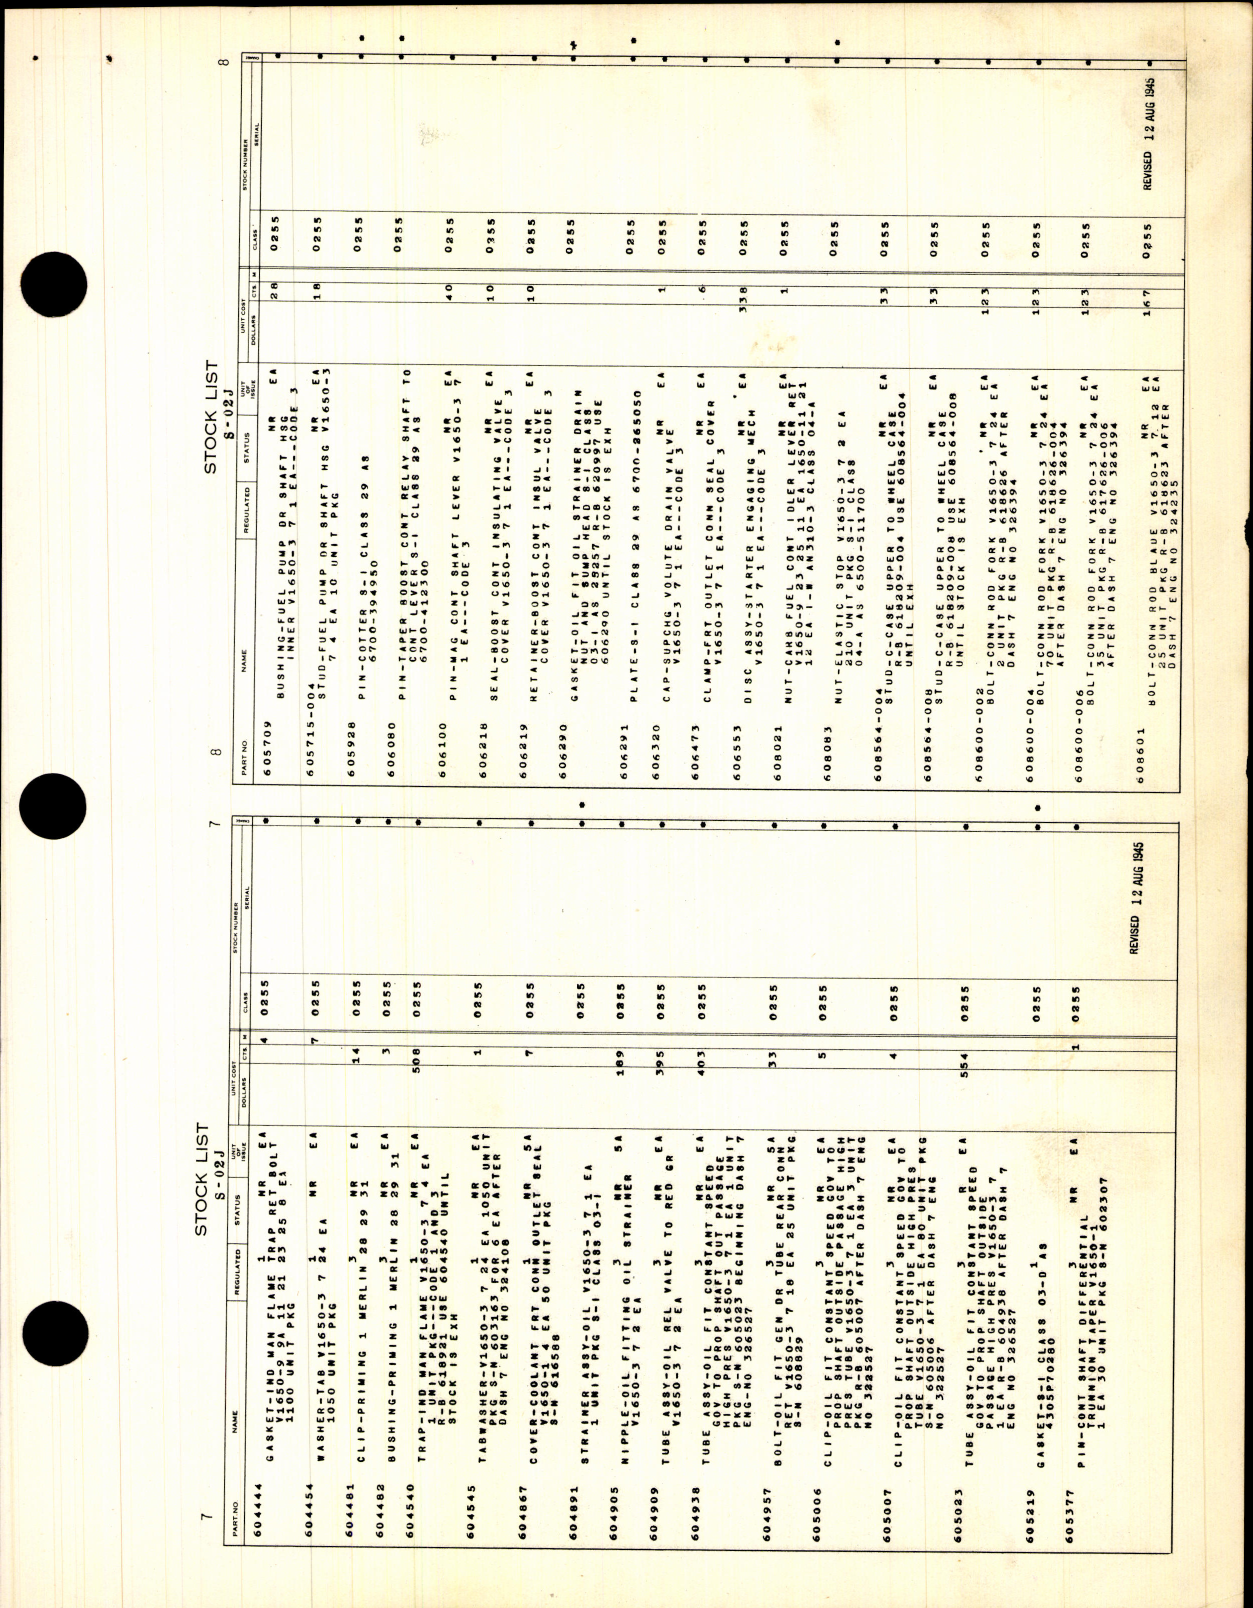 7
STOCK LIST
S-02J
7
PART NO NAME REGULATED STATUS UNIT OF ISSUE UNIT COST DOLLARS CTS. M STOCK NUMBER CLASS SERIAL
604444
GASKET-IND MAN FLAME TRAP RET BOLT 1 NR EA 4 0255
V1650-9 9A 11 21 23 25 8 EA
1100 UNIT PKG
604454
WASHER-TAB V1650-3 7 24 EA 1 NR EA 7 0255
1050 UNIT PKG
604481
CLIP-PRIMING 1 MERLIN 28 29 31 3 NR EA 14 0255
604482
BUSHING-PRIMING 1 MERLIN 28 29 31 3 NR EA 3 0255
604540
TRAP-IND MAN FLAME V1650-3 7 4 EA 1 NR EA 508 0255
1 UNIT PKG---CODE 1 AND 3
R-B 618921 USE 604540 UNTIL
STOCK IS EXH
604545
TABWASHER-V1650-3 7 24 EA 1050 UNIT 1 NR EA 1 0255
PKG S-N 603163 FOR 6 EA AFTER
DASH 7 ENG NO 324108
604867
COVER-COOLANT FRT CONN OUTLET SEAL 1 NR EA 7 0255
V1650-1 4 EA 50 UNIT PKG
S-N 61658
604891
STRAINER ASSY-OIL V1650-3 7 1 EA 0255
1 UNIT PKG S-I CLASS 03-I
604905
NIPPLE-OIL FITTING OIL STRAINER 3 NR EA 189 0255
V1650-3 7 2 EA
604909
TUBE ASSY-OIL REL VALVE TO RED GR 3 NR EA 395 0255
V1650-3 7 2 EA
604938
TUBE ASSY-OIL FIT CONSTANT SPEED 3 NR EA 403 0255
GOV TO PROP SHAFT OUT PASSAGE
HIGH PRES V1650-3 7 1 EA 1 UNIT
PKG S-N 605023 BEGINNING DASH 7
ENG-NO 326527
604957
BOLT-OIL FIT GEN DR TUBE REAR CONN 3 NR EA 33 0255
RET V1650-3 7 18 EA 25 UNIT PKG
S-N 608829
605006
CLIP-OIL FIT CONSTANT SPEED GOV TO 3 NR EA 5 0255
PROP SHAFT OUTSIDE PASSAGE HIGH
PRES TUBE V1650-3 7 1 EA 3 UNIT
PKG R-B 605007 AFTER DASH 7 ENG
NO 322527
605007
CLIP-OIL FIT CONSTANT SPEED GOV TO 3 NR EA 4 0255
PROP SHAFT OUTSIDE HIGH PRES
TUBE V1650-3 7 1 EA 80 UNIT PKG
S-N 605006 AFTER DASH 7 ENG
NO 322527
605023
TUBE ASSY-OIL FIT CONSTANT SPEED 3 R EA 554 0255
GOV TO PROP SHAFT OUTSIDE
PASSAGE HIGH PRES V1650-3 7
1 EA R-B 604938 AFTER DASH 7
ENG NO 326527
605219
GASKET-S-I CLASS 03-D AS 1 0255
4305P70280
605377
PIN-CONT SHAFT DIFFERENTIAL 3 NR EA 1 0255
TRUNNION TAPER V1650-1
1 EA 30 UNIT PKG S-N 602307
REVISED 12 AUG 1945
8
STOCK LIST
S-02J
8
PART NO NAME REGULATED STATUS UNIT OF ISSUE UNIT COST DOLLARS CTS. M STOCK NUMBER CLASS SERIAL
605709
BUSHING-FUEL PUMP DR SHAFT HSG NR EA 28 0255
INNER V1650-3 7 1 EA---CODE 3
605715-004
STUD-FUEL PUMP DR SHAFT HSG V1650-3 NR EA 18 0255
7 4 EA 10 UNIT PKG
605928
PIN-COTTER S-I CLASS 29 AS 0255
6700-394950
606080
PIN-TAPER BOOST CONT RELAY SHAFT TO 0255
CONT LEVER S-I CLASS 29 AS
6700-412300
606100
PIN-MAG CONT SHAFT LEVER V1650-3 7 NR EA 40 0255
1 EA---CODE 3
606218
SEAL-BOOST CONT INSULATING VALVE NR EA 10 0355
COVER V1650-3 7 1 EA---CODE 3
606219
RETAINER-BOOST CONT INSUL VALVE NR EA 10 0255
COVER V1650-3 7 1 EA---CODE 3
606290
GASKET-OIL FIT OIL STRAINER DRAIN 0255
NUT AND SUMP HEAD S-I CLASS
03-I AS 25257 R-B 620997 USE
606290 UNTIL STOCK IS EXH
606291
PLATE-S-I CLASS 29 AS 6700-265050 0255
606320
CAP-SUPCHG VOLUTE DRAIN VALVE NR EA 1 0255
V1650-3 7 1 EA---CODE 3
606473
CLAMP-FRT OUTLET CONN SEAL COVER NR EA 6 0255
V1650-3 7 1 EA---CODE 3
606553
DISC ASSY-STARTER ENGAGING MECH NR EA 338 0255
V1650-3 7 1 EA---CODE 3
608021
NUT-CARB FUEL CONT IDLER LEVER RET NR EA 1 0255
V1650-9 23 25 11 EA 1650-11 21
12 EA I-W AN310-3 CLASS 04-A
608083
NUT-ELASTIC STOP V1650-3 7 2 EA 0255
210 UNIT PKG S-I CLASS
04-A AS 6500-511700
608564-004
STUD-C-CASE UPPER TO WHEEL CASE NR EA 33 0255
R-B 618209-004 USE 608564-004
UNTIL EXH
608564-008
STUD-C-CASE UPPER TO WHEEL CASE NR EA 33 0255
R-B 618209-008 USE 608564-008
UNTIL STOCK IS EXH
608600-002
BOLT-CONN ROD FORK V1650-3 7 24 EA NR EA 123 0255
2 UNIT PKG R-B 618626 AFTER
DASH 7 ENG NO 326394
608600-004
BOLT-CONN ROD FORK V1650-3 7 24 EA NR EA 123 0255
70 UNIT PKG R-B 618626-004
AFTER DASH 7 ENG NO 326394
608600-006
BOLT-CONN ROD FORK V1650-3 7 24 EA NR EA 123 0255
35 UNIT PKG R-B 617626-006
AFTER DASH 7 ENG NO 326394
608601
BOLT-CONN ROD BLADE V1650-3 7 12 EA NR EA 167 0255
25 UNIT PKG R-B 618623 AFTER
DASH 7 ENG NO 324235
REVISED 12 AUG 1945